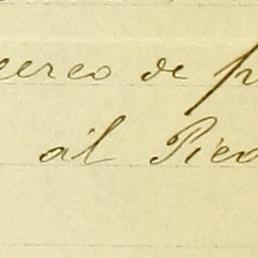 cerco de p
ál Pied